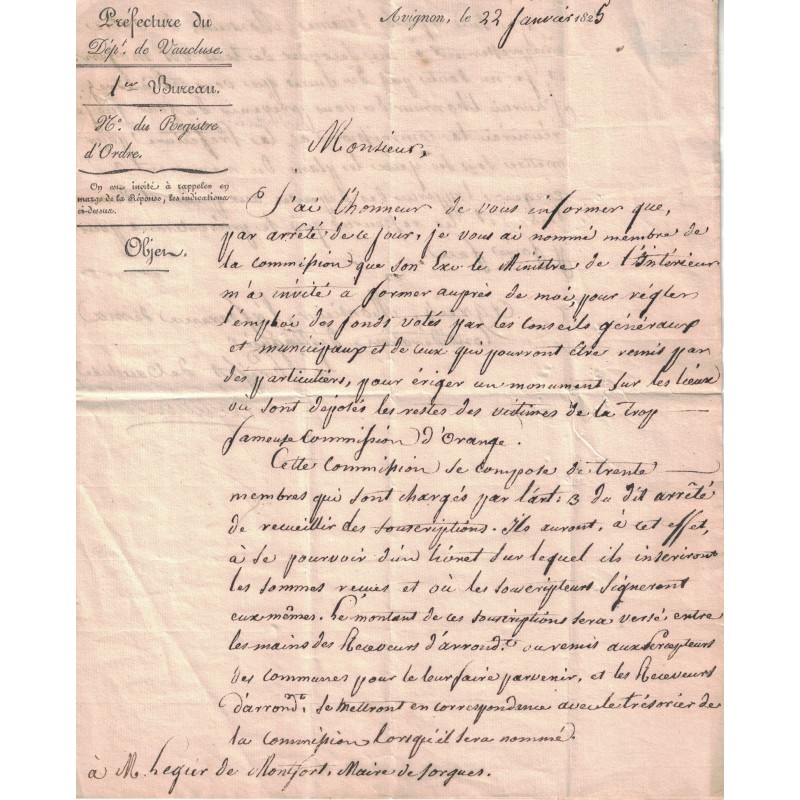 Préfecture du
Dépt. de Vaucluse.
1er Bureau.
N.° du Registre
d'Ordre.
On est invité à rappeler en
marge de la Réponse, les indications
ci-dessus.
Objet.
Avignon, le 22 Janvier 1825
Monsieur,
J'ai l'honneur de vous informer que,
par arrêté de ce jour, je vous ai nommé membre de
la commission que son Exc. le Ministre de l'Intérieur
m'a invité à former auprès de moi, pour régler
l'emploi des fonds votés par les conseils généraux
et municipaux et de ceux qui pourront être remis par
des particuliers, pour ériger un monument sur les lieux
où sont déposés les restes des victimes de la trop
fameuse Commission d'Orange.
Cette Commission se compose de trente
membres qui sont chargés par l'art: 3 du dit arrêté
de recueillir des souscriptions. Ils auront, à cet effet,
à se pourvoir d'un livret sur lequel ils inscriront
les sommes reçues et où les souscripteurs signeront
eux mêmes. Le montant de ces souscriptions sera versé entre
les mains des Receveurs d'arrondt. ou remis aux Percepteurs
des communes pour le leur faire parvenir, et les Receveurs
d'arrondmt. se mettront en correspondance avec le trésorier de
la commission lorsqu'il sera nommé.
à M. Legier de Montfort, Maire de Sorgues.